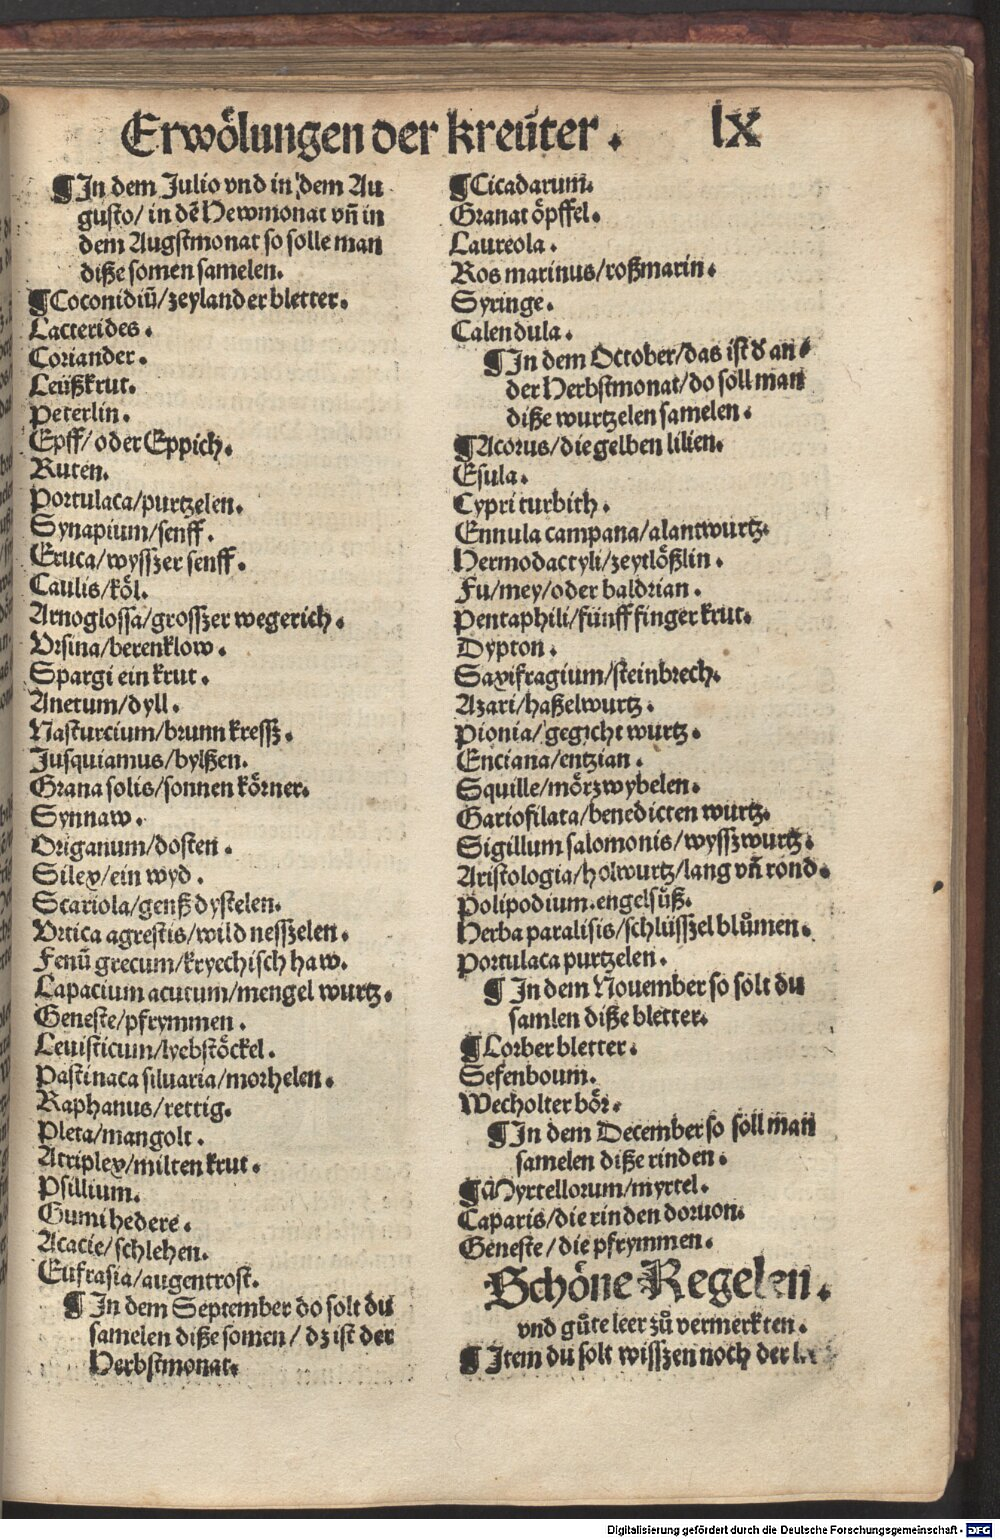 Erwölungen der kreüter. lx
¶In dem Julio vnd in dem Au
gusto/ in dē Hewmonat vn̄ in
dem Augstmonat so solle man
diße somen samelen.
¶Coconidiū/zeylander bletter.
Lacterides.
Coriander.
Leüßkrut.
Peterlin.
Epff/ oder Eppich.
Ruten.
Portulaca/purtzelen.
Synapium/senff.
Eruca/wysszer senff.
Caulis/köl.
Arnoglossa/grosszer wegerich.
Vrsina/berenklow.
Spargi ein krut.
Anetum/dyll.
Nasturcium/brunn kressz.
Jusquiamus/bylßen.
Grana solis/sonnen körner.
Synnaw.
Origanum/dosten.
Siley/ein wyd.
Scariola/genß dystelen.
Vrtica agrestis/wild nesszelen.
Fenū grecum/kryechisch haw.
Lapacium acutum/mengel wurtz.
Geneste/pfrymmen.
Leuisticum/lyebstöckel.
Pastinaca siluaria/morhelen.
Raphanus/rettig.
Pleta/mangolt.
Atripley/milten krut.
Psillium.
Gumi hedere.
Acacie/schlehen.
Eufrasia/augentrost.
¶ In dem September do solt du
samelen diße somen/ dz ist der
Herbstmonat.
¶Cicadarum.
Granat öpffel.
Laureola.
Ros marinus/roßmarin.
Syringe.
Calendula.
¶In dem October/das ist d an
der Herbstmonat/do soll man
diße wurtzelen samelen.
¶Acorus/die gelben lilien.
Esula.
Cypri turbith.
Ennula campana/alantwurtz.
Hermodactyli/zeytlößlin.
Fu/mey/oder baldrian.
Pentaphili/fünff finger krut.
Dypton.
Sayifragium/steinbrech.
Azari/haßelwurtz.
Pionia/gegicht wurtz.
Enciana/entzian.
Squille/mörzwybelen.
Gariofilata/benedicten wurtz.
Sigillum salomonis/wyssz wurtz.
Aristologia/holwurtz/lang vn̄ rond.
Polipodium.engelsüß.
Herba paralisis/schlüsszel blůmen.
Portulaca purtzelen.
¶ In dem Nouember so solt du
samlen diße bletter.
¶Lorber bletter.
Sefenboum.
Wecholter bör.
¶In dem December so soll man
samelen diße rinden.
¶Myrtellorum/myrtel.
Caparis/die rinden doruon.
Geneste/die pfrymmen.
Schöne Regelen.
vnd gůte leer zů vermerkten.
¶ Item du solt wisszen noch der
Digitalisierung gefördert durch die Deutsche Forschungsgemeinschaft - DFG